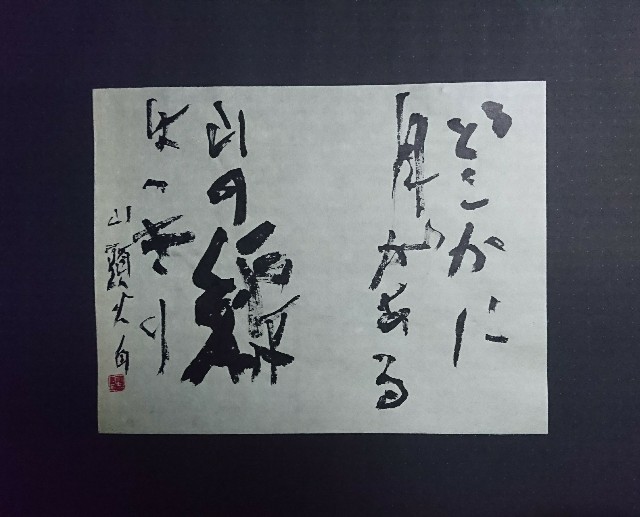 どこかに
月がある
山の線
はっきり
山頭火 句